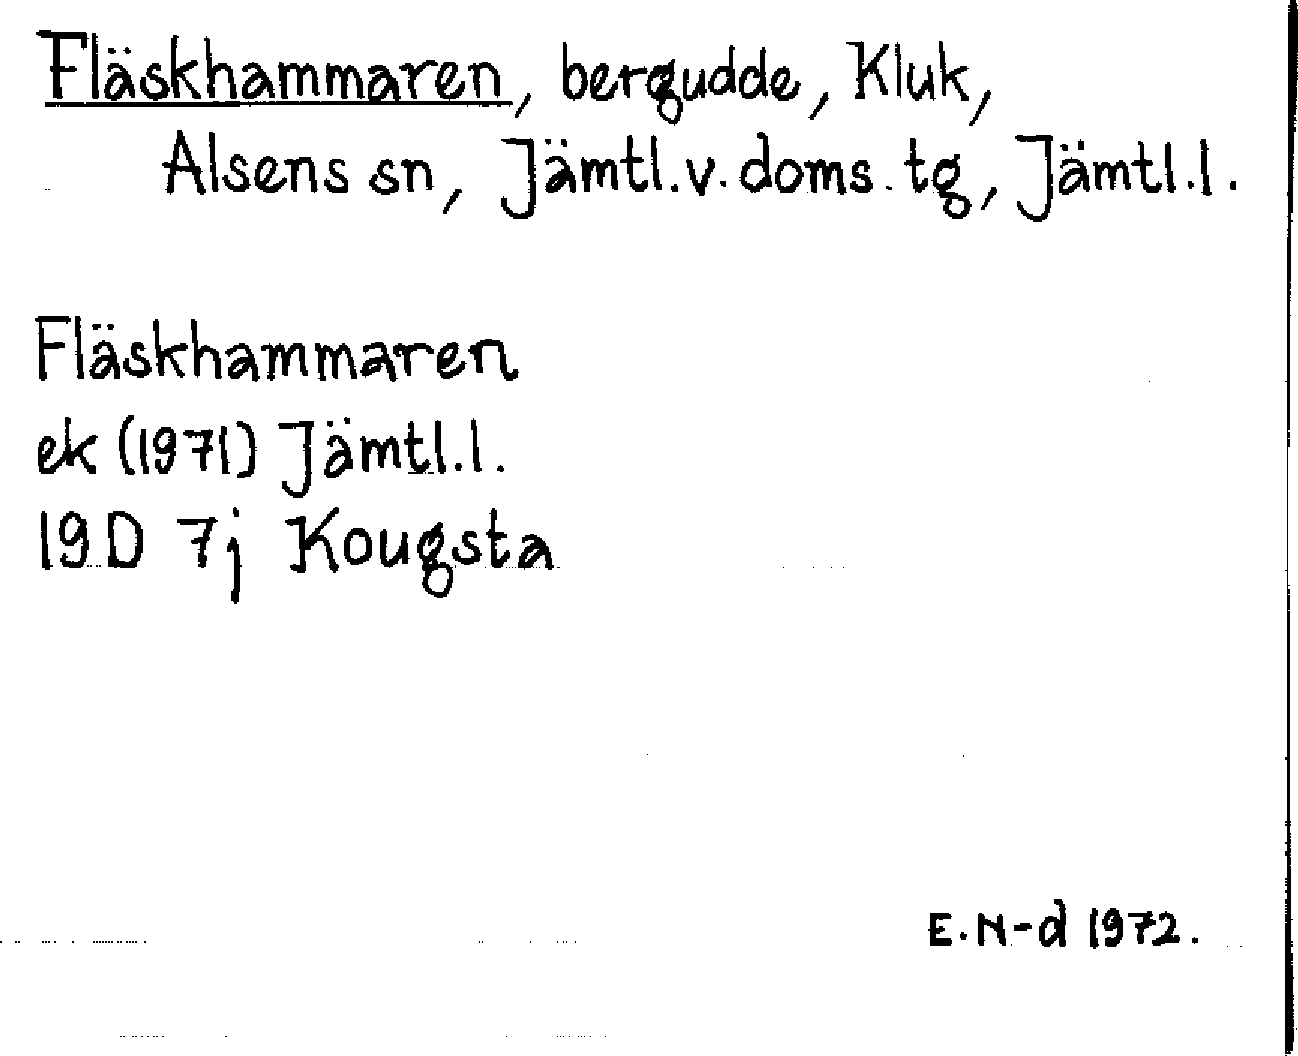 Fläskhammaren, bergudde, Kluk,
Alsens sn, Jämtl.v.doms.tg, Jämtl.l.
Fläskhammaren
ek (1971) Jämtl.l.
19D 7j Kougsta
E.N-d 1972.